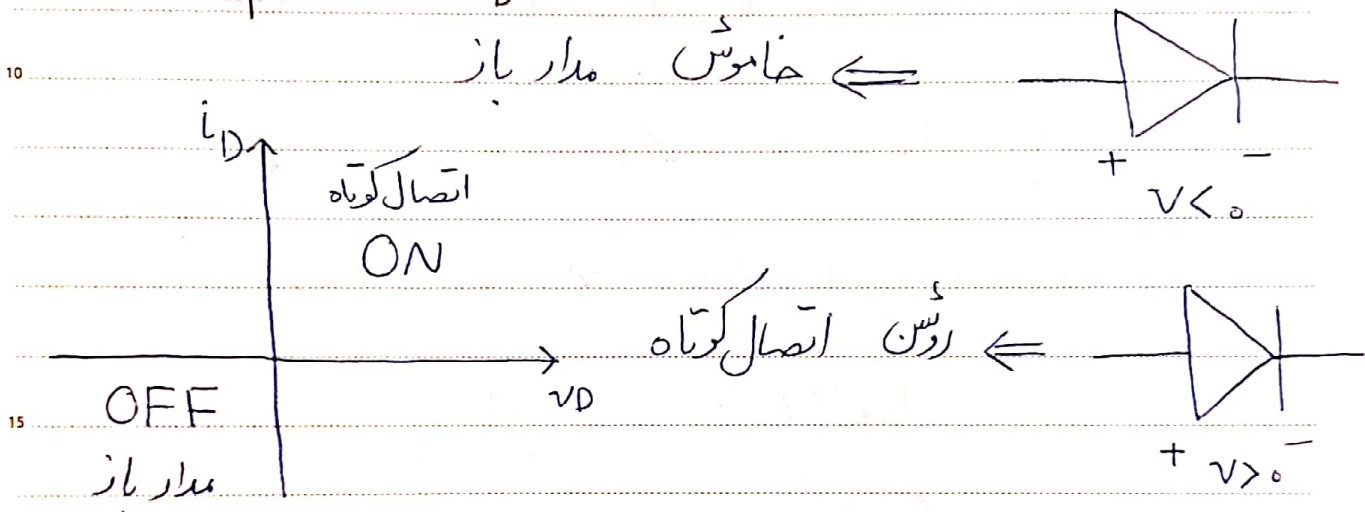 10
خاموش مدار باز ⇐
+ −
v < 0
i_D
اتصال کوتاه
ON
روشن اتصال کوتاه ⇐
v_D
+ v > 0 −
15
OFF
مدار باز